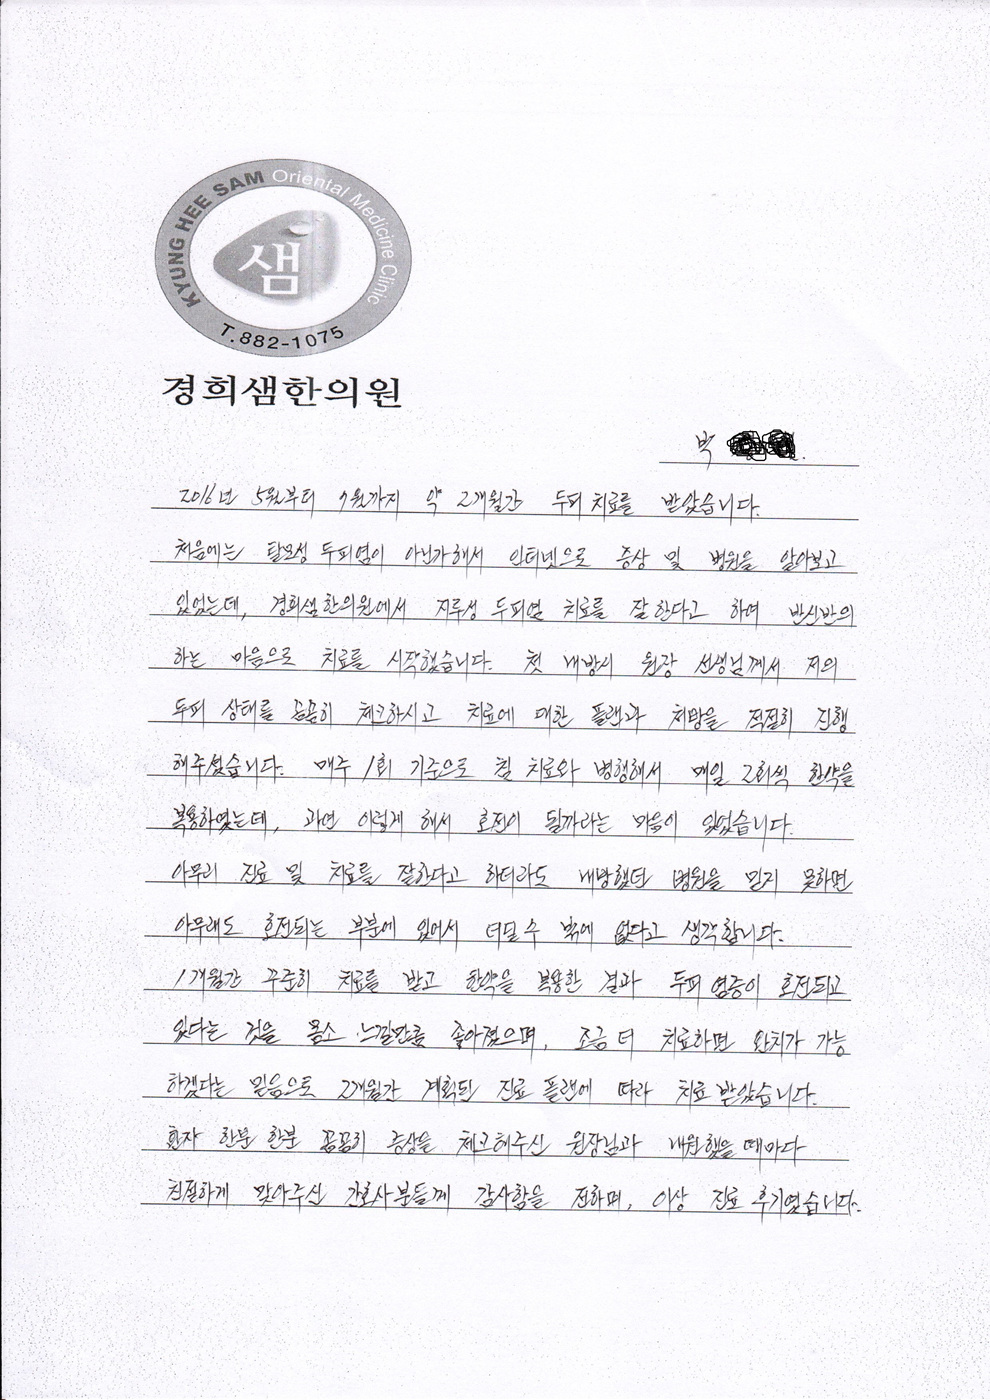 KYUNG HEE SAM Oriental Medicine Clinic
샘
T.882-1075
경희샘한의원
박
2016년 5월부터 7월까지 약 2개월간 두피 치료를 받았습니다.
처음에는 탈모성 두피염이 아닌가해서 인터넷으로 증상 및 병원을 알아보고
있었는데, 경희샘한의원에서 지루성 두피염 치료를 잘한다고 하여 반신반의
하는 마음으로 치료를 시작했습니다. 첫 내방시 원장 선생님께서 저의
두피 상태를 꼼꼼히 체크하시고 치료에 대한 플랜과 처방을 적절히 진행
해주셨습니다. 매주 1회 기준으로 침 치료와 병행해서 매일 2회씩 한약을
복용하였는데, 과연 이렇게 해서 호전이 될까라는 마음이 있었습니다.
아무리 진료 및 치료를 잘한다고 하더라도 내방했던 병원을 믿지 못하면
아무래도 호전되는 부분에 있어서 더딜 수 밖에 없다고 생각합니다.
1개월간 꾸준히 치료를 받고 한약을 복용한 결과 두피 염증이 호전되고
있다는 것을 몸소 느낄만큼 좋아졌으며, 조금 더 치료하면 완치가 가능
하겠다는 믿음으로 2개월간 계획된 진료 플랜에 따라 치료 받았습니다.
환자 한분 한분 꼼꼼히 증상을 체크해주신 원장님과 내원했을 때마다
친절하게 맞아주신 간호사분들께 감사함을 전하며, 이상 진료 후기였습니다.